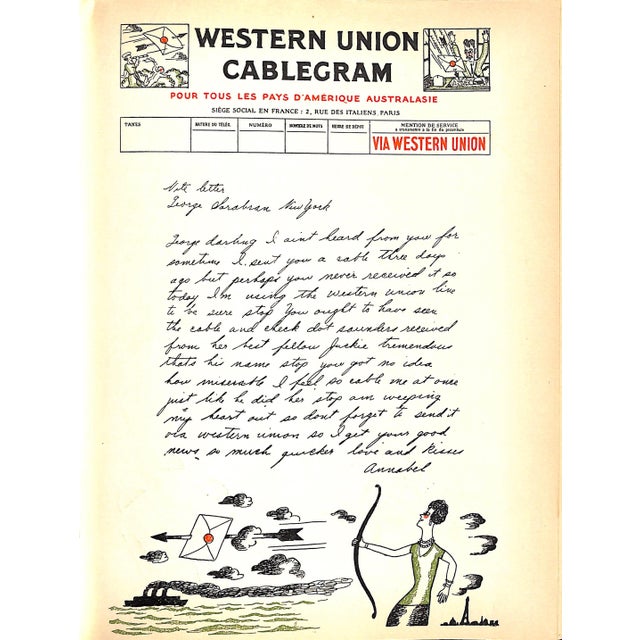 WESTERN UNION
CABLEGRAM
POUR TOUS LES PAYS D'AMÉRIQUE AUSTRALASIE
SIÈGE SOCIAL EN FRANCE : 2, RUE DES ITALIENS, PARIS
TAXES
NATURE DU TÉLÉG.
NUMÉRO
NOMBRE DE MOTS
HEURE DE DÉPOT
MENTION DE SERVICE
VIA WESTERN UNION
Nite letter
George New York
George darling I aint heard from you for
sometime I sent you a cable three days
ago but perhaps you never received it so
today I'm using the western union line
to be sure stop You ought to have seen
the cable and check dot saunders received
from her best fellow Jackie tremendous
thats his name stop you got no idea
how miserable I feel so cable me at once
just like he did her stop am weeping
my heart out so dont forget to send it
via western union so I get your good
news so much quicker love and kisses
Annabel